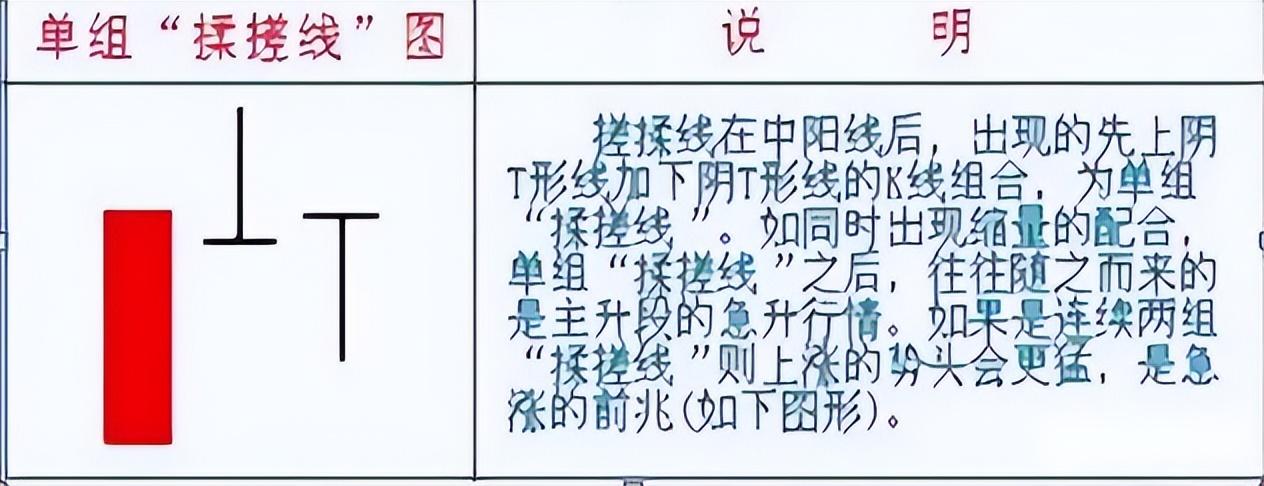 单组“揉搓线”图
说 明
搓揉线在中阳线后，出现的先上阴
T形线加下阴T形线的K线组合，为单组
“揉搓线”。如同时出现缩量的配合，
单组“揉搓线”之后，往往随之而来的
是主升段的急升行情。如果是连续两组
“揉搓线”则上涨的势头会更猛，是急
涨的前兆(如下图形)。